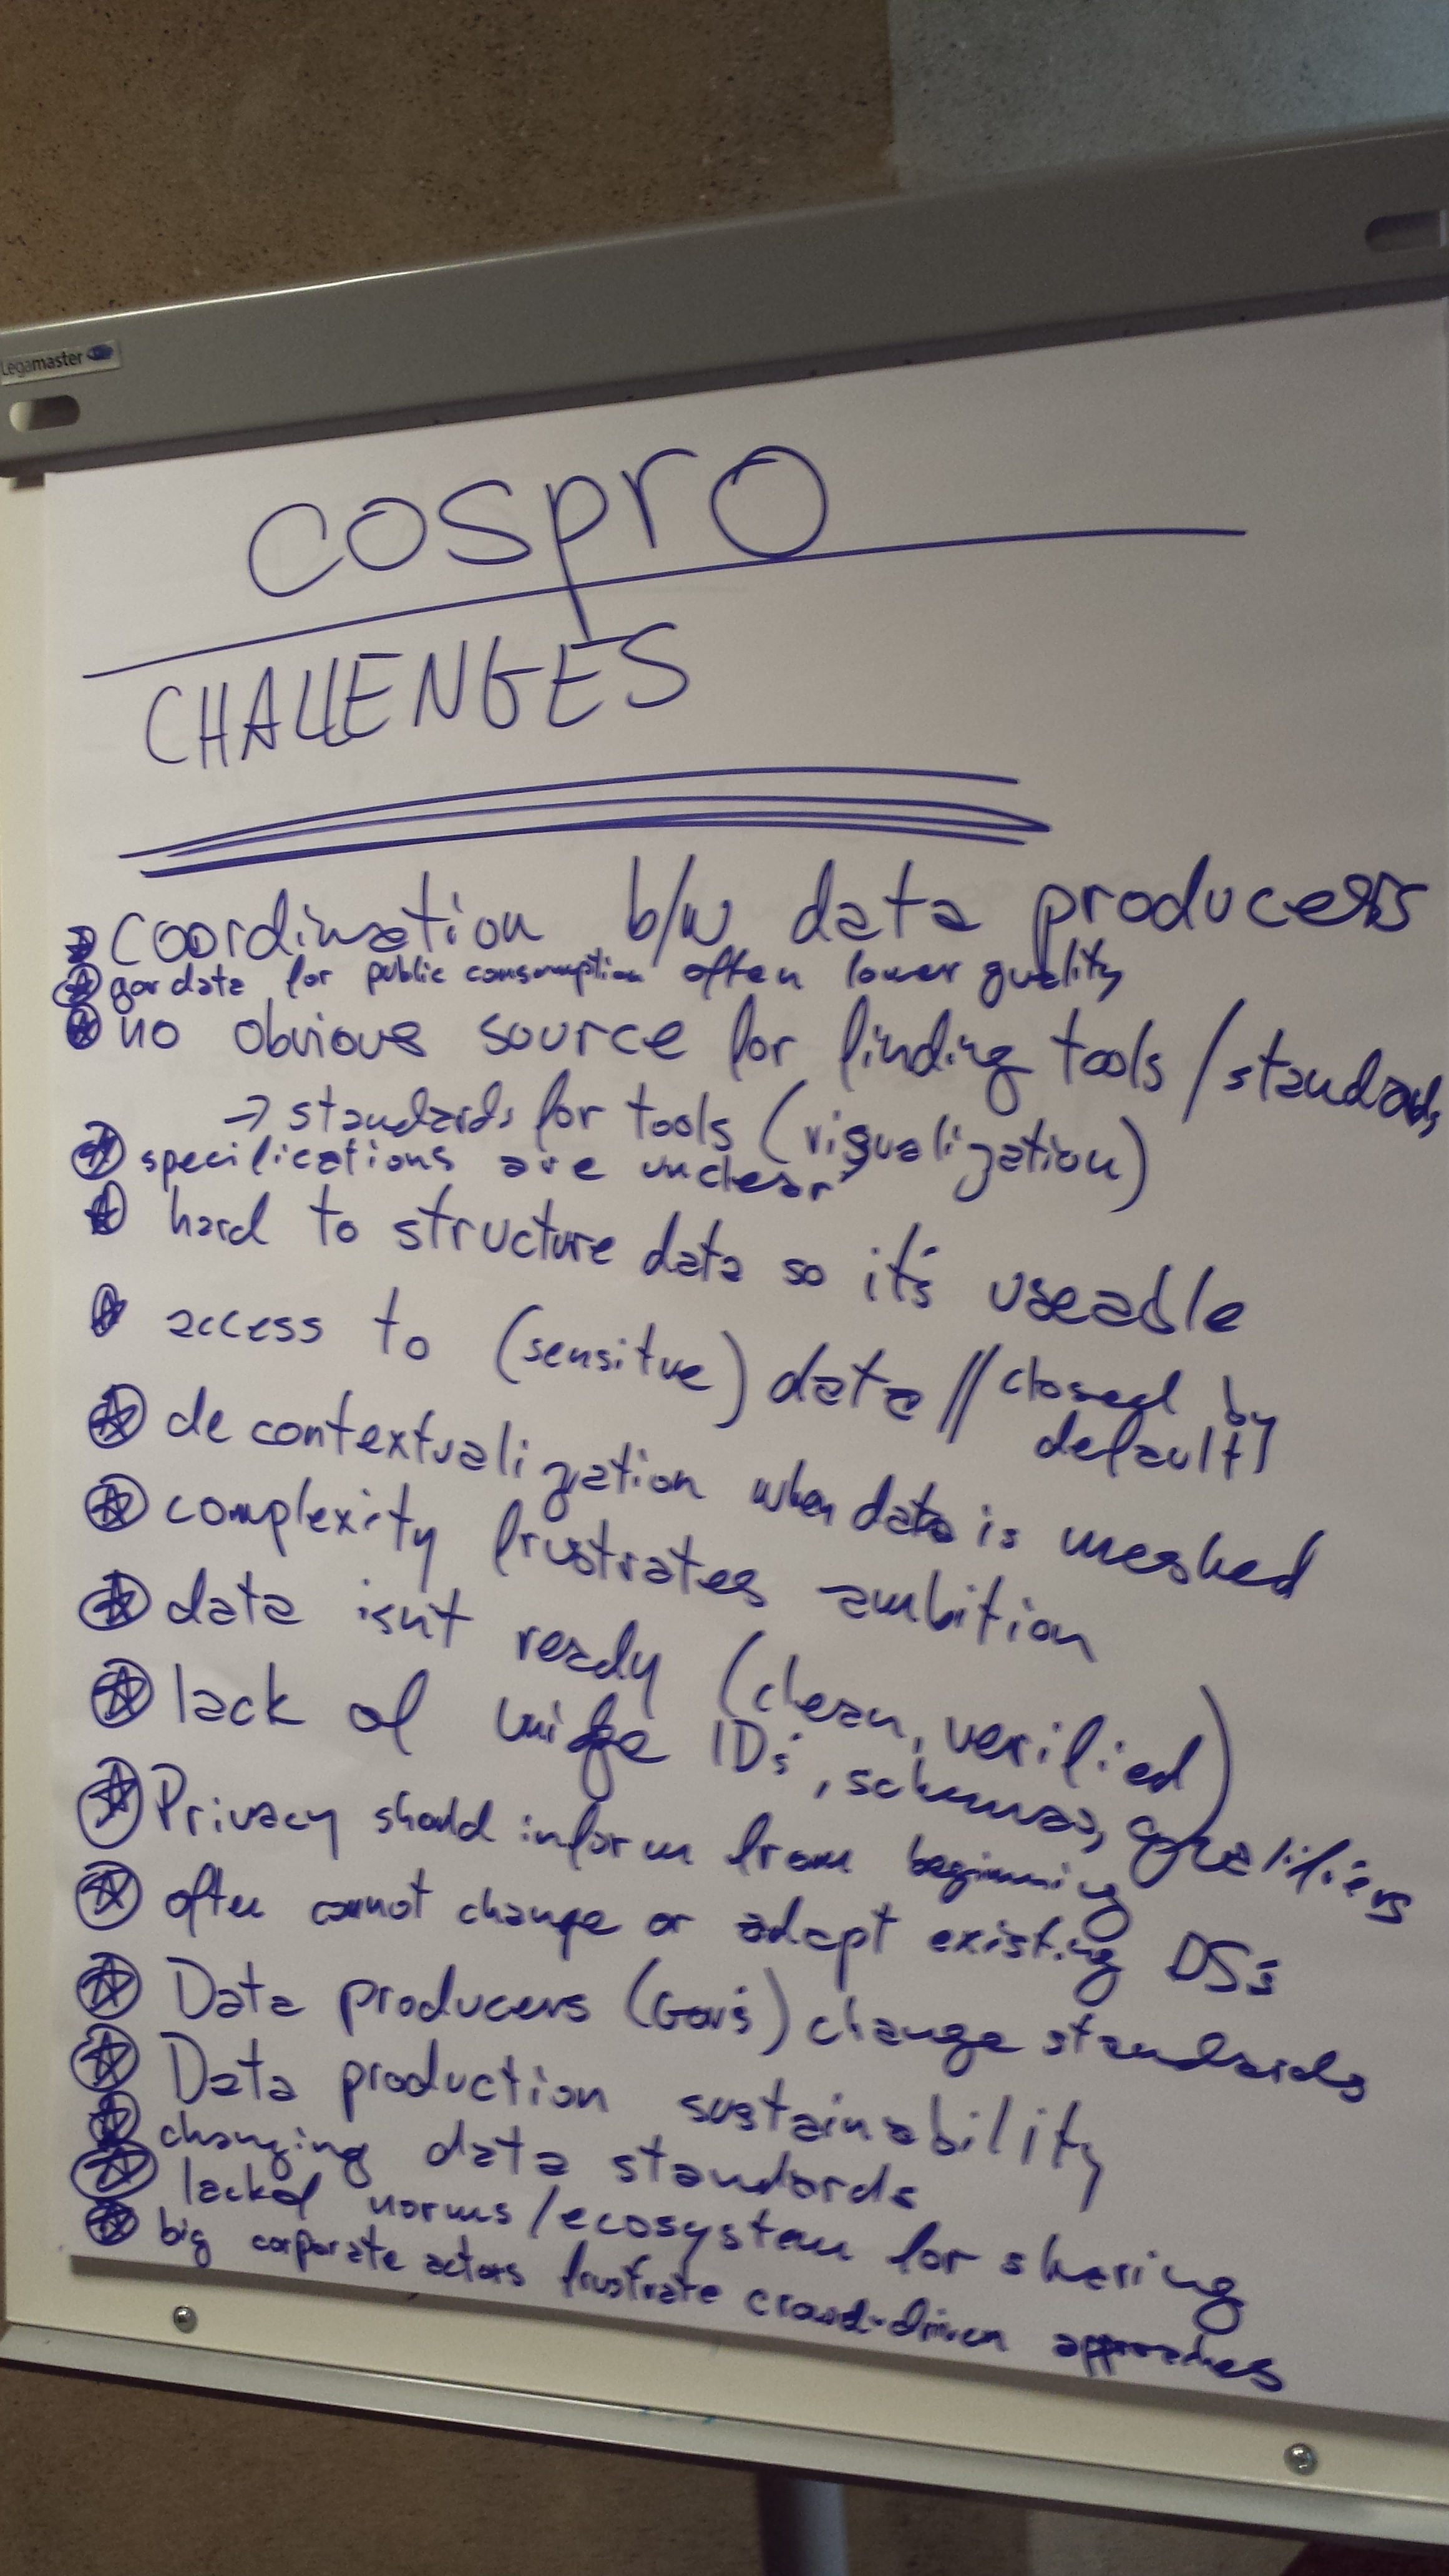 Legamaster
cospro
CHALLENGES
coordination b/w data producers
gov data for public consumption often lower quality
no obvious source for finding tools / standards
→ standards for tools (visualization)
specifications are unclear
hard to structure data so it's useable
access to (sensitve) data // closed by
default
de contextualization when data is meshed
complexity frustrates ambition
data isn't ready (clean, verified)
lack of unique IDs, schemas, qualifiers
Privacy should inform from beginning
often cannot change or adapt existing DS's
Data producers (Gov's) change standards
Data production sustainability
changing data standards
lack of norms / ecosystem for sharing
big corporate actors frustrate crowd-driven approaches